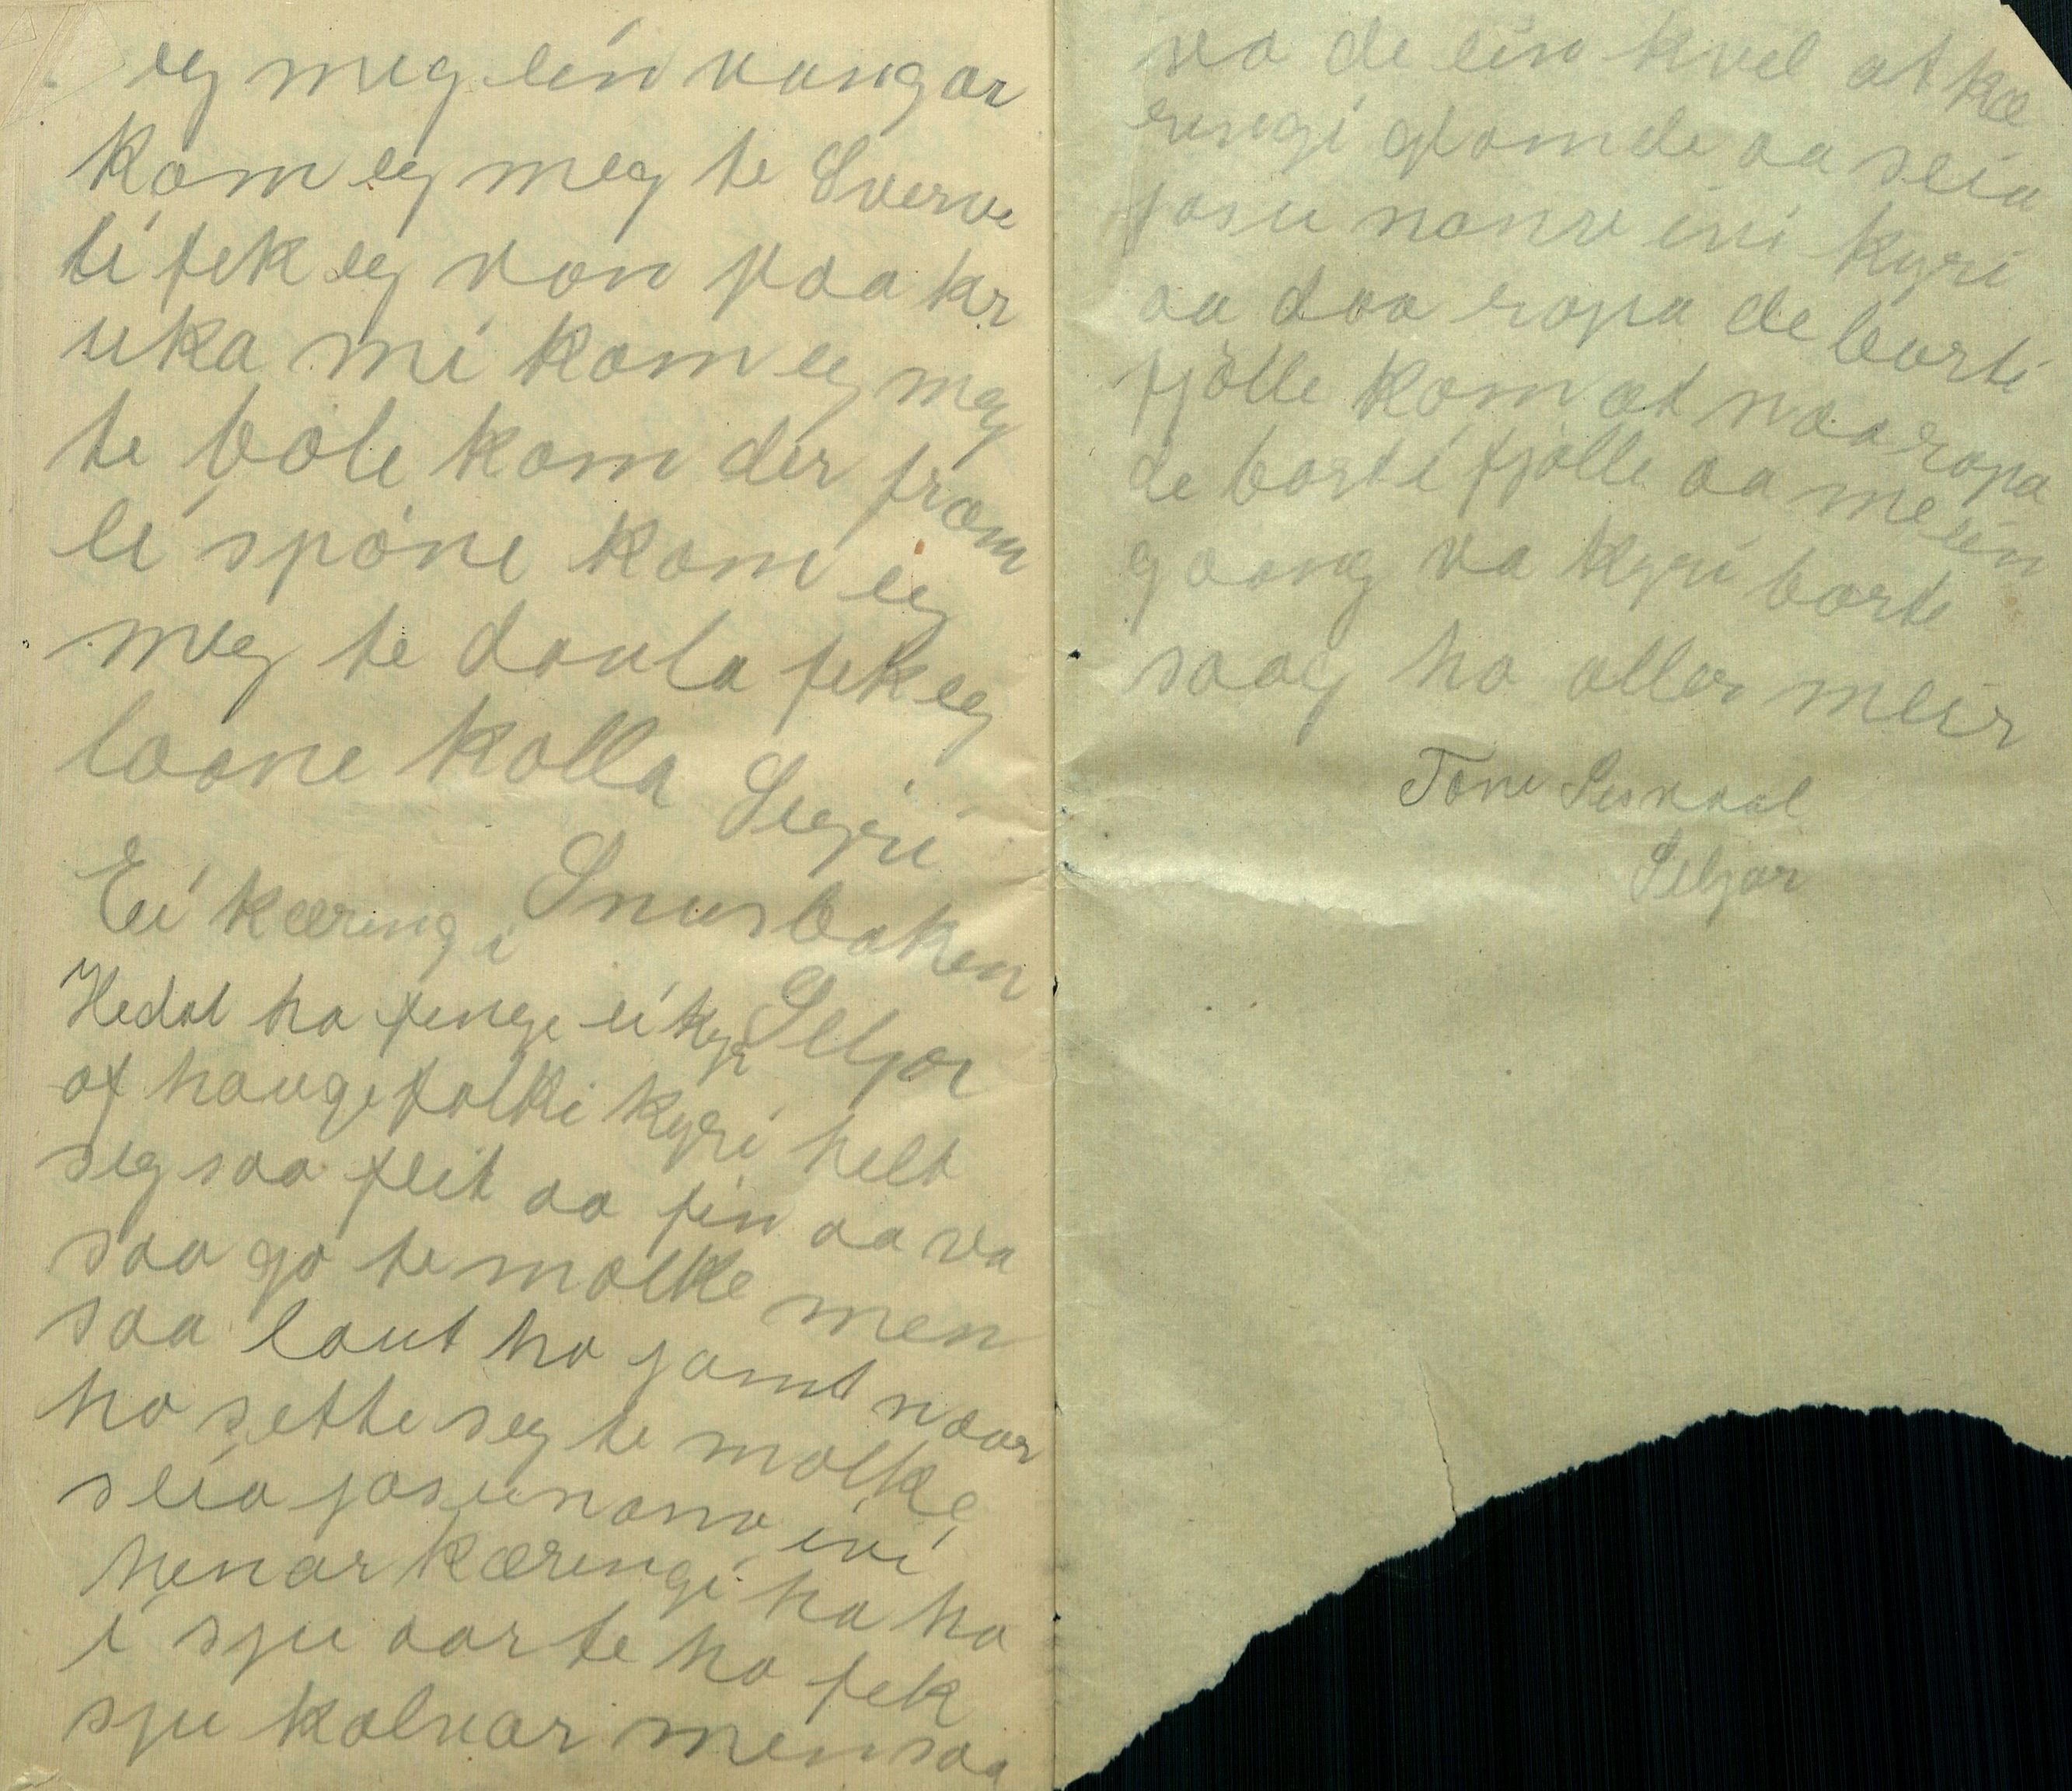 eg meg ein vangar
kom eg meg te Sverve
ti fek eg von paa kr
uka mi kom eg meg
te bole kom der fram
ei spone kom eg
meg te daula fek eg
laane kolla Sigri
Ei kæring i Snusbaken
Hedal ha fenge ei kyr Seljor
af haugefolki kyri helt
seg saa feit aa fin aa va
saa go te molke men
saa laut ho jamt naar
ho sette seg te molke
seia josunavn ivi
henar kæringi ha ho
i sju aar te ho fek
sju kalvar men saa
va de ein kvel at kæ
ringi glømde aa seia
josu navn ivi kyri
aa daa ropa de borti
fjölle kom at naa ropa
de borti fjölle aa me ein
gaang va kyri borte
saag ho aller meir
Tone
Seljor